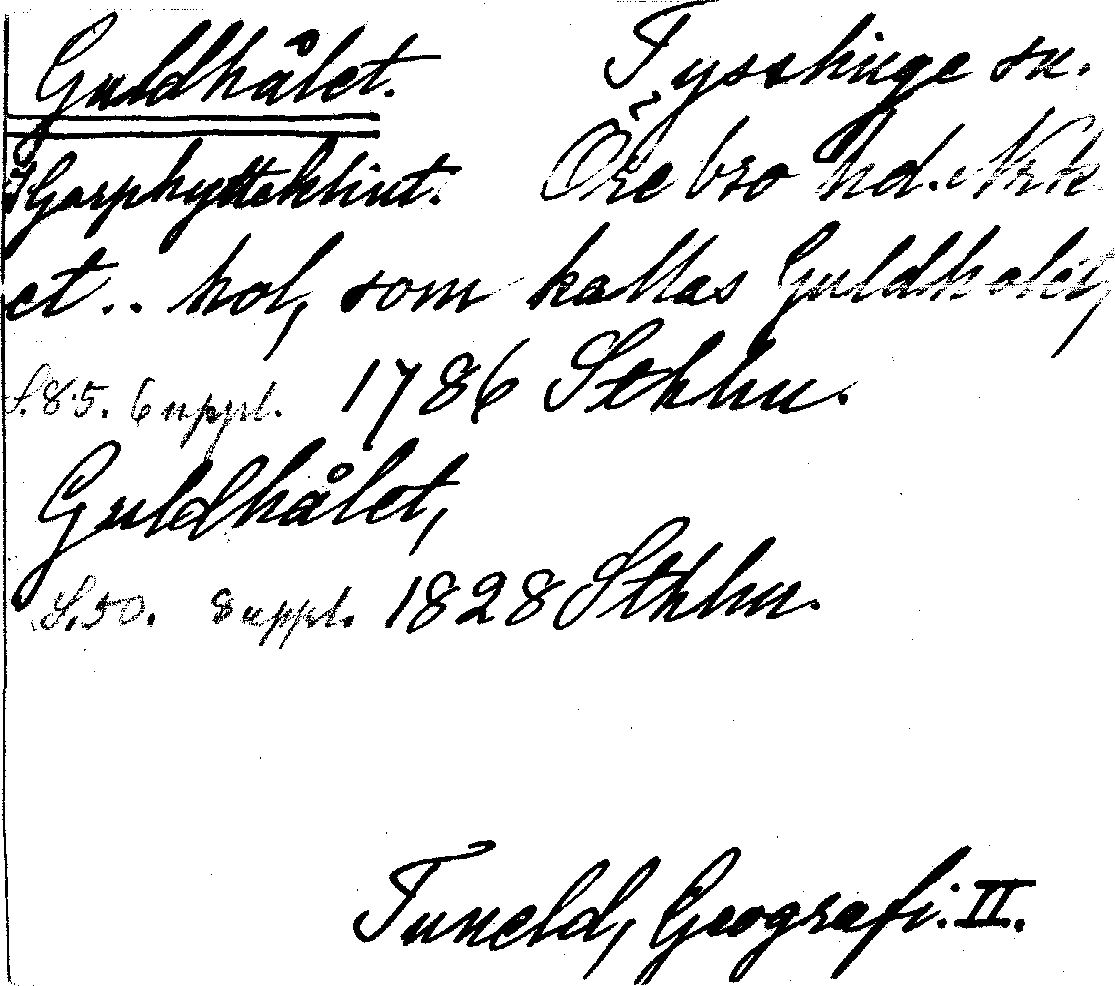 Guldhålet. Tysslinge sn.
i Garphytteklint. Örebro hd. Nrk
et .. hol, som kallas Guldholet,
S. 85. 6 uppl. 1786 Sthlm.
Guldhålet,
S. 50. 8 uppl. 1828 Sthlm.
Tuneld, Geografi. II.